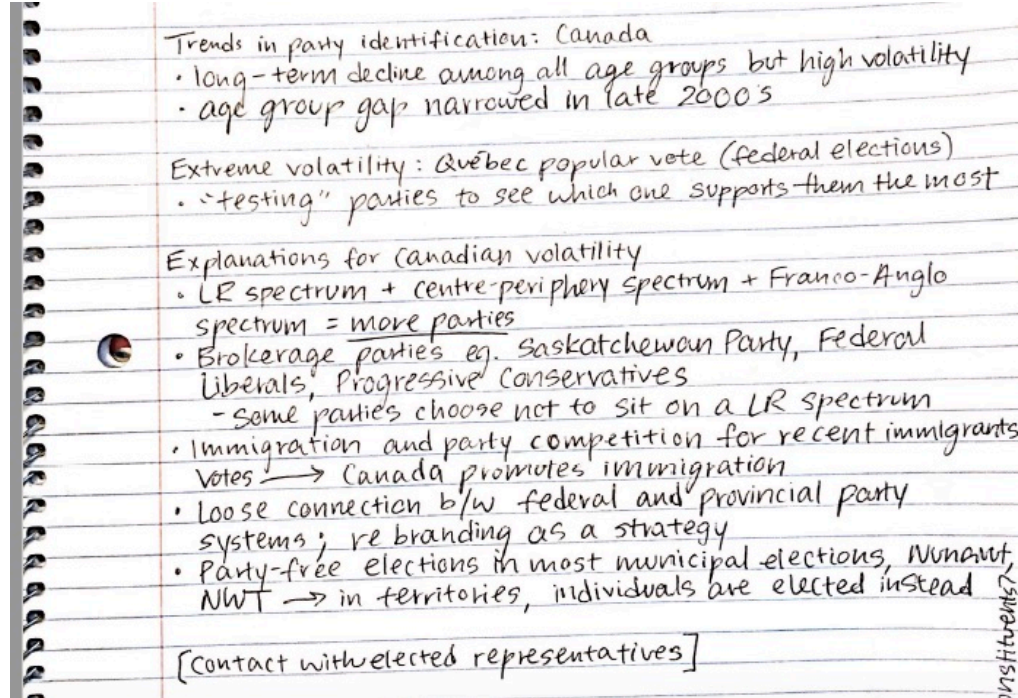 Trends in party identification: Canada
• long-term decline among all age groups but high volatility
• age group gap narrowed in late 2000's
Extreme volatility: Québec popular vote (federal elections)
• "testing" parties to see which one supports them the most
Explanations for Canadian volatility
• LR spectrum + centre-periphery spectrum + Franco-Anglo
spectrum = more parties
• Brokerage parties eg. Saskatchewan Party, Federal
Liberals, Progressive Conservatives
- some parties choose not to sit on a LR spectrum
• Immigration and party competition for recent immigrants
votes → Canada promotes immigration
• Loose connection b/w federal and provincial party
systems; re branding as a strategy
• Party-free elections in most municipal elections, Nunavut,
NWT → in territories, individuals are elected instead
[contact with elected representatives]
onstituents?